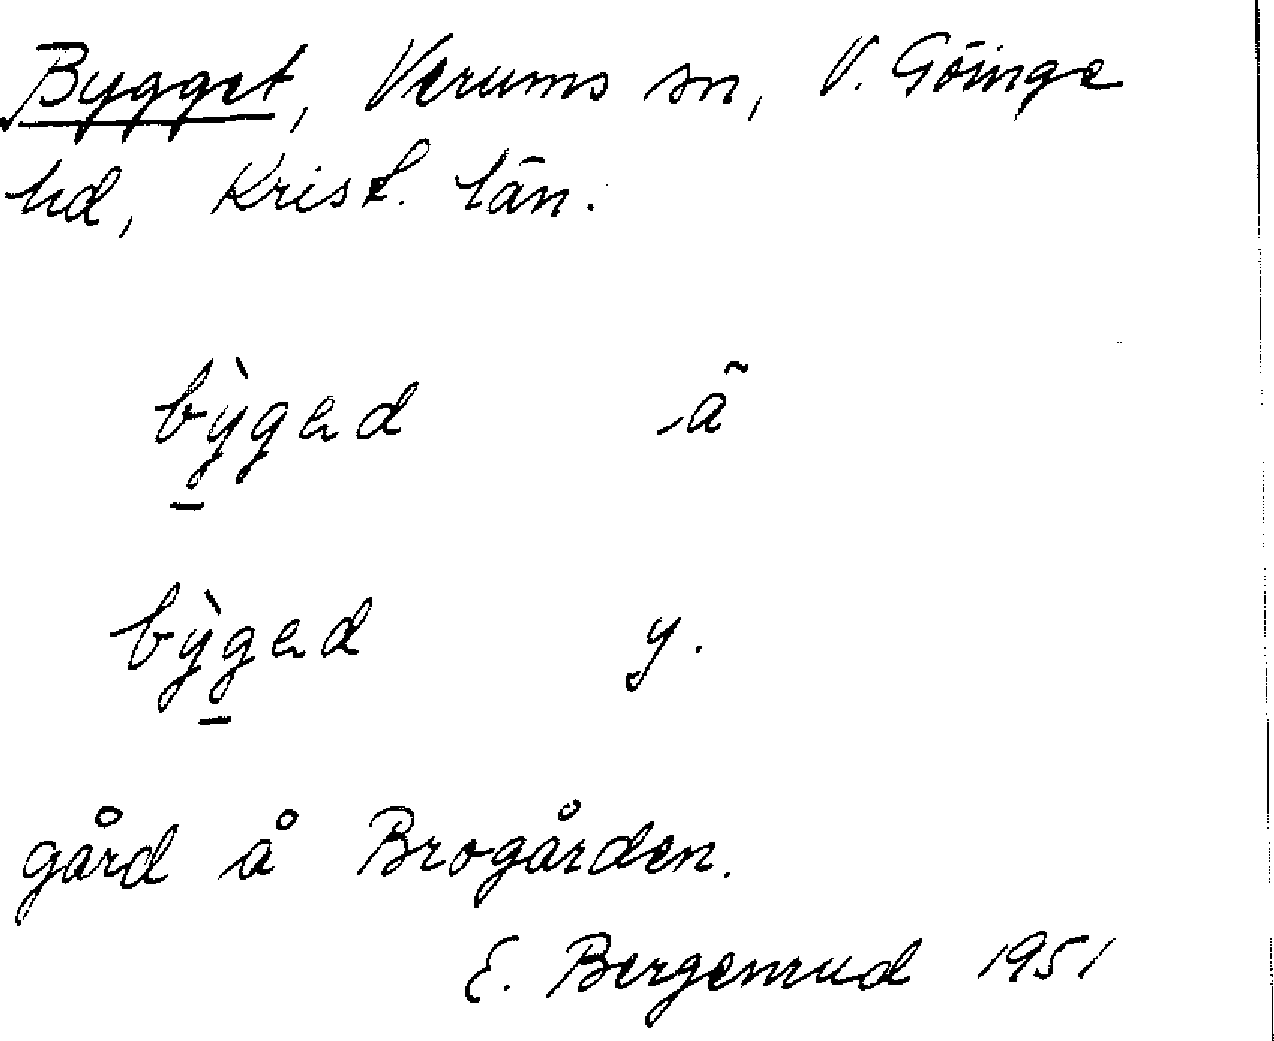 Bygget, Verums sn, V. Göinge
hd, Krist. län.
bỳged ã
bỳged y.
gård å Brogården.
E. Bergenrud 1951